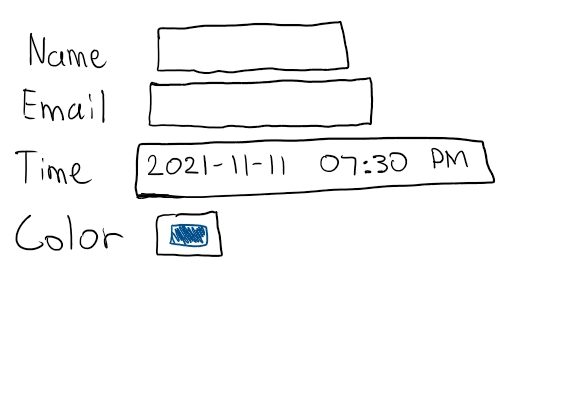 Name
Email
Time 2021-11-11 07:30 PM
Color